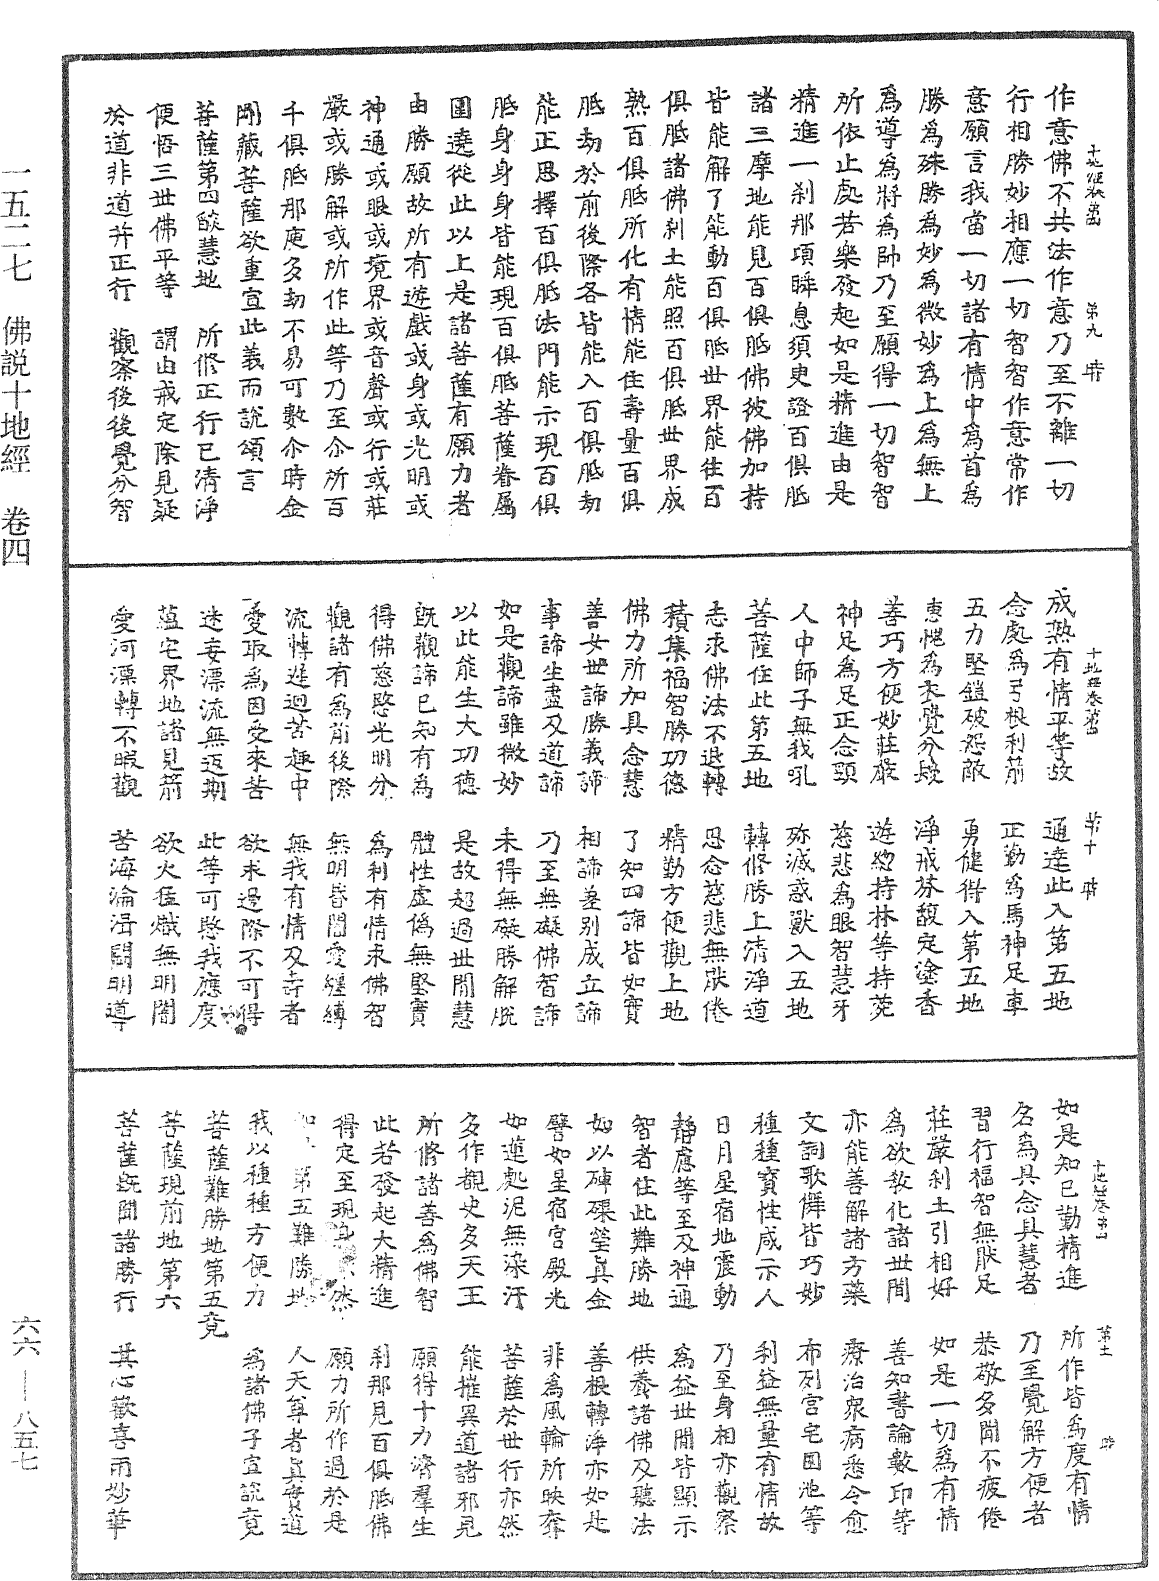 一五二七　佛説十地經　卷四
六六——八五七
十地經卷第四　第九　時
作意佛不共法作意乃至不離一切
行相勝妙相應一切智智作意常作
意願言我當一切諸有情中爲首爲
勝爲殊勝爲妙爲微妙爲上爲無上
爲導爲將爲帥乃至願得一切智智
所依止處若樂發起如是精進由是
精進一刹那項瞬息須臾證百俱胝
諸三摩地能見百俱胝佛彼佛加持
皆能解了能動百俱胝世界能往百
俱胝諸佛刹土能照百俱胝世界成
熟百俱胝所化有情能住壽量百俱
胝劫於前後際各皆能入百俱胝劫
能正思擇百俱胝法門能示現百俱
胝身身身皆能現百俱胝菩薩眷屬
圍遶從此以上是諸菩薩有願力者
由勝願故所有遊戲或身或光明或
神通或眼或境界或音聲或行或莊
嚴或勝解或所作此等乃至尒所百
千俱胝那庾多劫不易可數尒時金
剛藏菩薩欲重宣此義而說頌言
菩薩第四燄慧地　所修正行已清淨
便悟三世佛平等　謂由戒定除見疑
於道非道并正行　觀察後後覺分智
十地經卷第四　第十　時
成熟有情平等故　通達此入第五地
念處爲弓根利箭　正勤爲馬神足車
五力堅鎧破怨敵　勇健得入第五地
慙愧爲衣覺分鬘　淨戒芬馥定塗香
善巧方便妙莊嚴　遊總持林等持苑
神足爲足正念頸　慈悲爲眼智慧牙
人中師子無我吼　殄滅惑獸入五地
菩薩住此第五地　轉修勝上清淨道
志求佛法不退轉　思念慈悲無猒倦
積集福智勝功德　精勤方便觀上地
佛力所加具念慧　了知四諦皆如實
善女世諦勝義諦　相諦差别成立諦
事諦生盡及道諦　乃至無礙佛智諦
如是觀諦雖微妙　未得無礙勝解脫
以此能生大功德　是故超過世間慧
旣觀諦已知有爲　體性虛僞無堅實
得佛慈愍光明分　爲利有情求佛智
觀諸有爲前後際　無明昏闇愛纏縛
流轉遲迴苦趣中　無我有情及壽者
愛取爲因受來苦　欲求邊際不可得
迷妄漂流無返期　此等可愍我應度
蘊宅界地諸見箭　欲火猛熾無明闇
愛河漂轉不暇觀　苦海淪湑闕明導
十地經卷第四　第十一　時
如是知已勤精進　所作皆爲度有情
名爲具念具慧者　乃至覺解方便者
習行福智無猒足　恭敬多聞不疲倦
莊嚴刹土引相好　如是一切爲有情
爲欲教化諸世間　善知書論數印等
亦能善解諸方藥　療治衆病悉令愈
文詞歌儛皆巧妙　布列宮宅園池等
種種寶性咸示人　利益無量有情故
日月星宿地震動　乃至身相亦觀察
靜慮等至及神通　爲益世間皆顯示
智者住此難勝地　供養諸佛及聽法
如以硨磲瑩眞金　善根轉淨亦如是
譬如星宿宮殿光　非爲風輪所映奪
如蓮處泥無染汙　菩薩於世行亦然
多作覩史多天王　能摧異道諸邪見
所修諸善爲佛智　願得十力濟羣生
此若發起大精進　刹那見百俱胝佛
得定至現身　然　願力所作過於是
如　第五難勝地　人天尊者眞實道
我以種種方便力　爲諸佛子宣說竟
菩薩難勝地第五竟
菩薩現前地第六
菩薩旣聞諸勝行　其心歡喜雨妙華